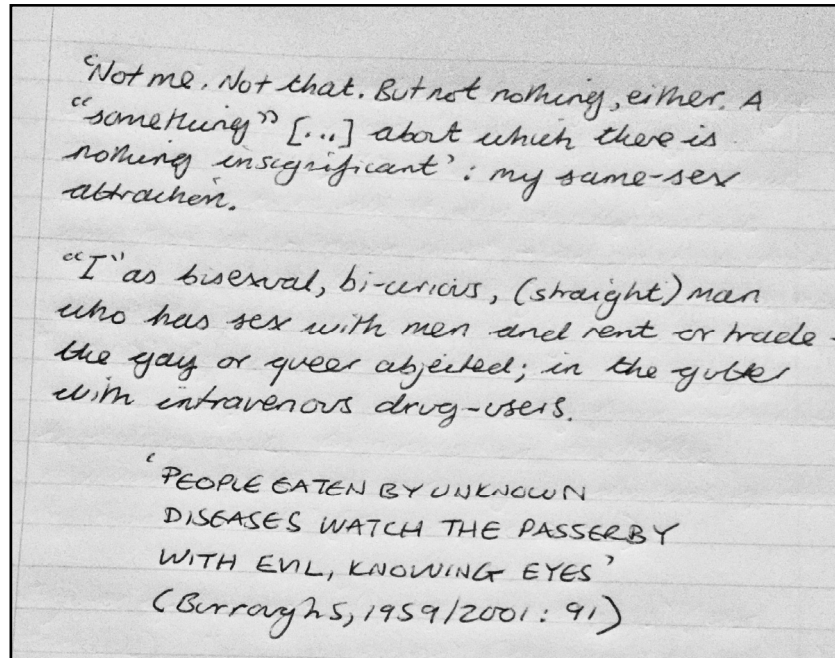 'Not me. Not that. But not nothing, either. A
"something" [...] about which there is
nothing insignificant': my same-sex
attraction.
"I" as bisexual, bi-curious, (straight) man
who has sex with men and rent or trade -
the gay or queer abjected; in the gutter
with intravenous drug-users.
'PEOPLE EATEN BY UNKNOWN
DISEASES WATCH THE PASSERBY
WITH EVIL, KNOWING EYES'
(Burroughs, 1959/2001: 91)